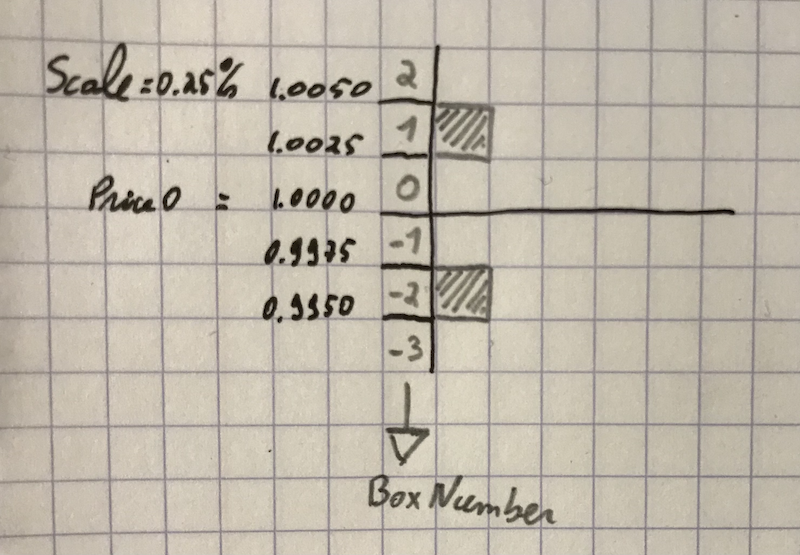 Scale=0.25% 1.0050 2
1.0025 1
Price0 = 1.0000 0
0.9975 -1
0.9950 -2
-3
Box Number